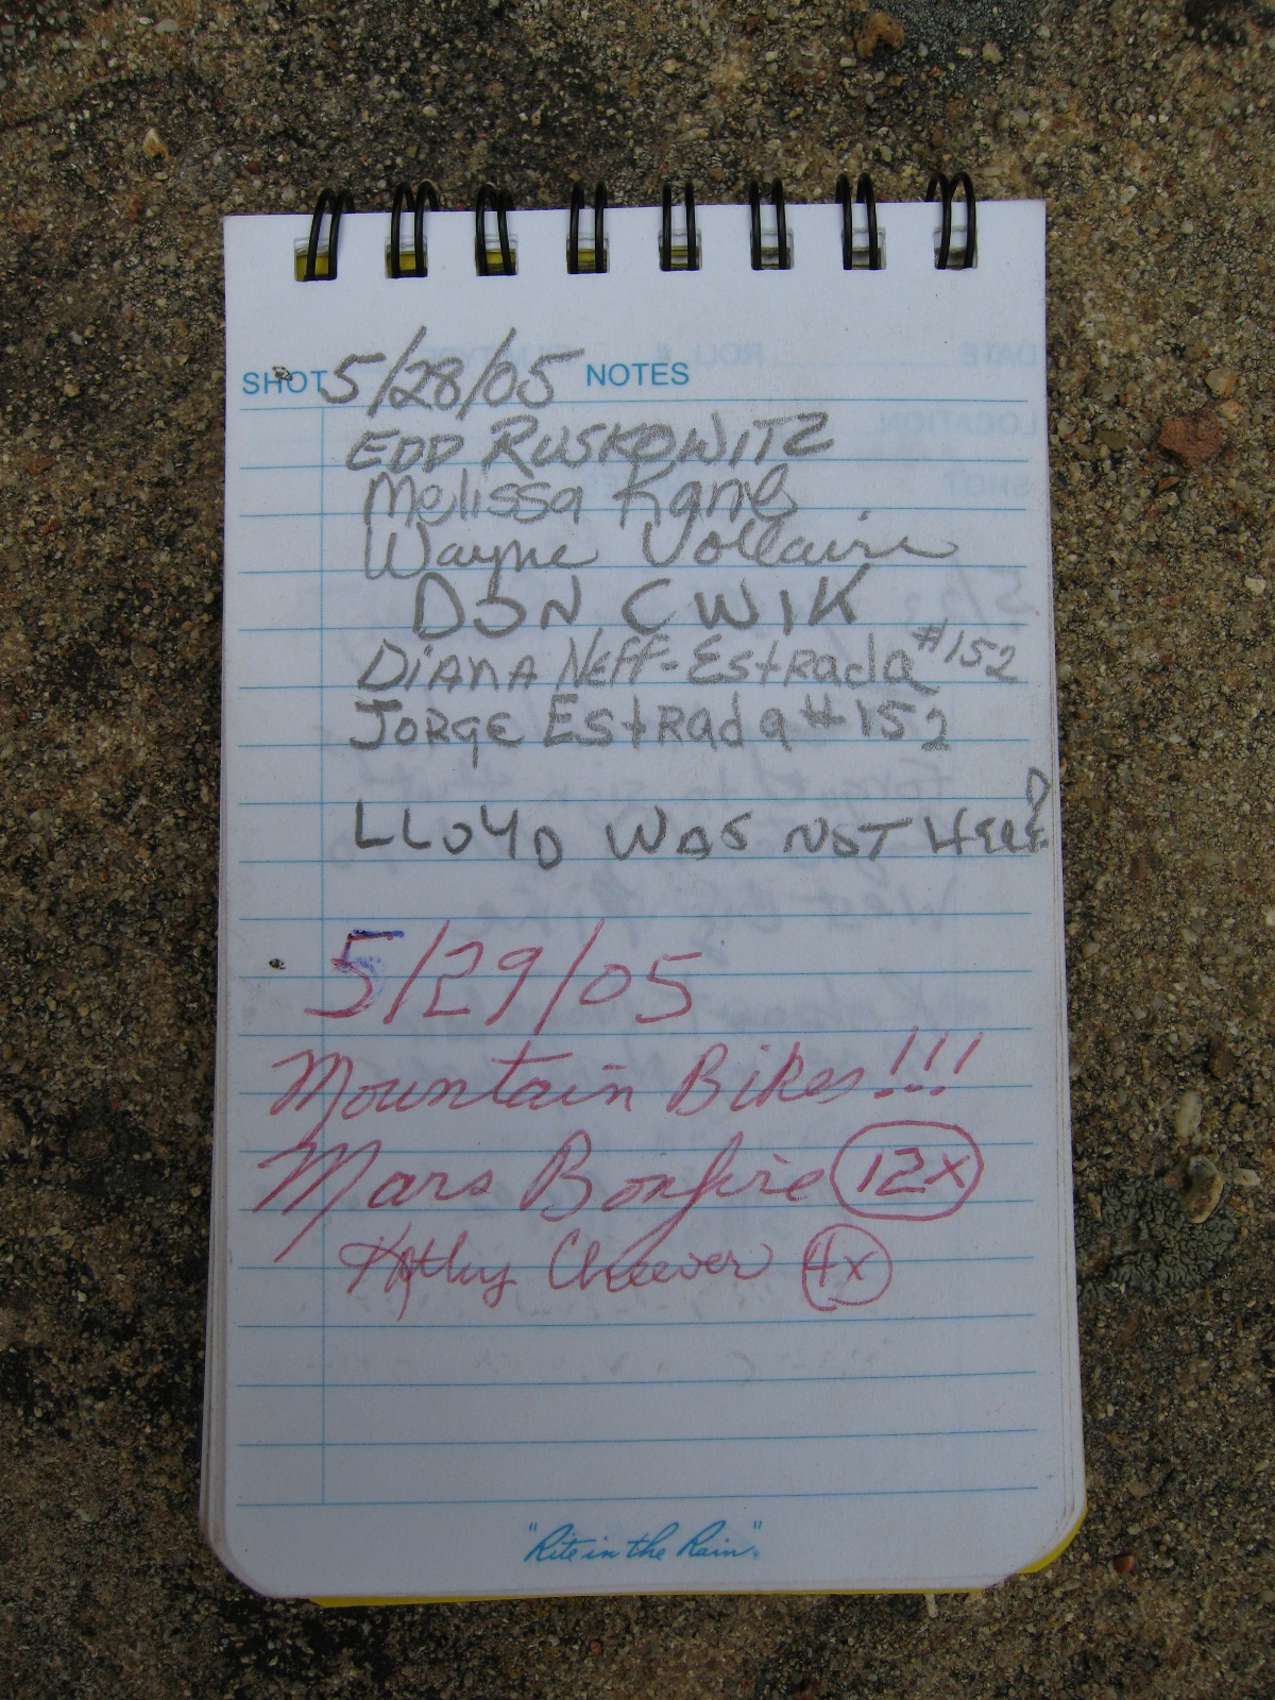 SHOT 5/28/05 NOTES
EDD RUSKOWITZ
Melissa Kane
Wayne Vollaire
DON CWIK
DIANA NEFF-EstRada #152
JORGE EstRada #152
LLOYD WAS NOT HERE
5/29/05
Mountain Bikes!!!
Mars Bonfire 12x
Kathy Cheever 4x
"Rite in the Rain".